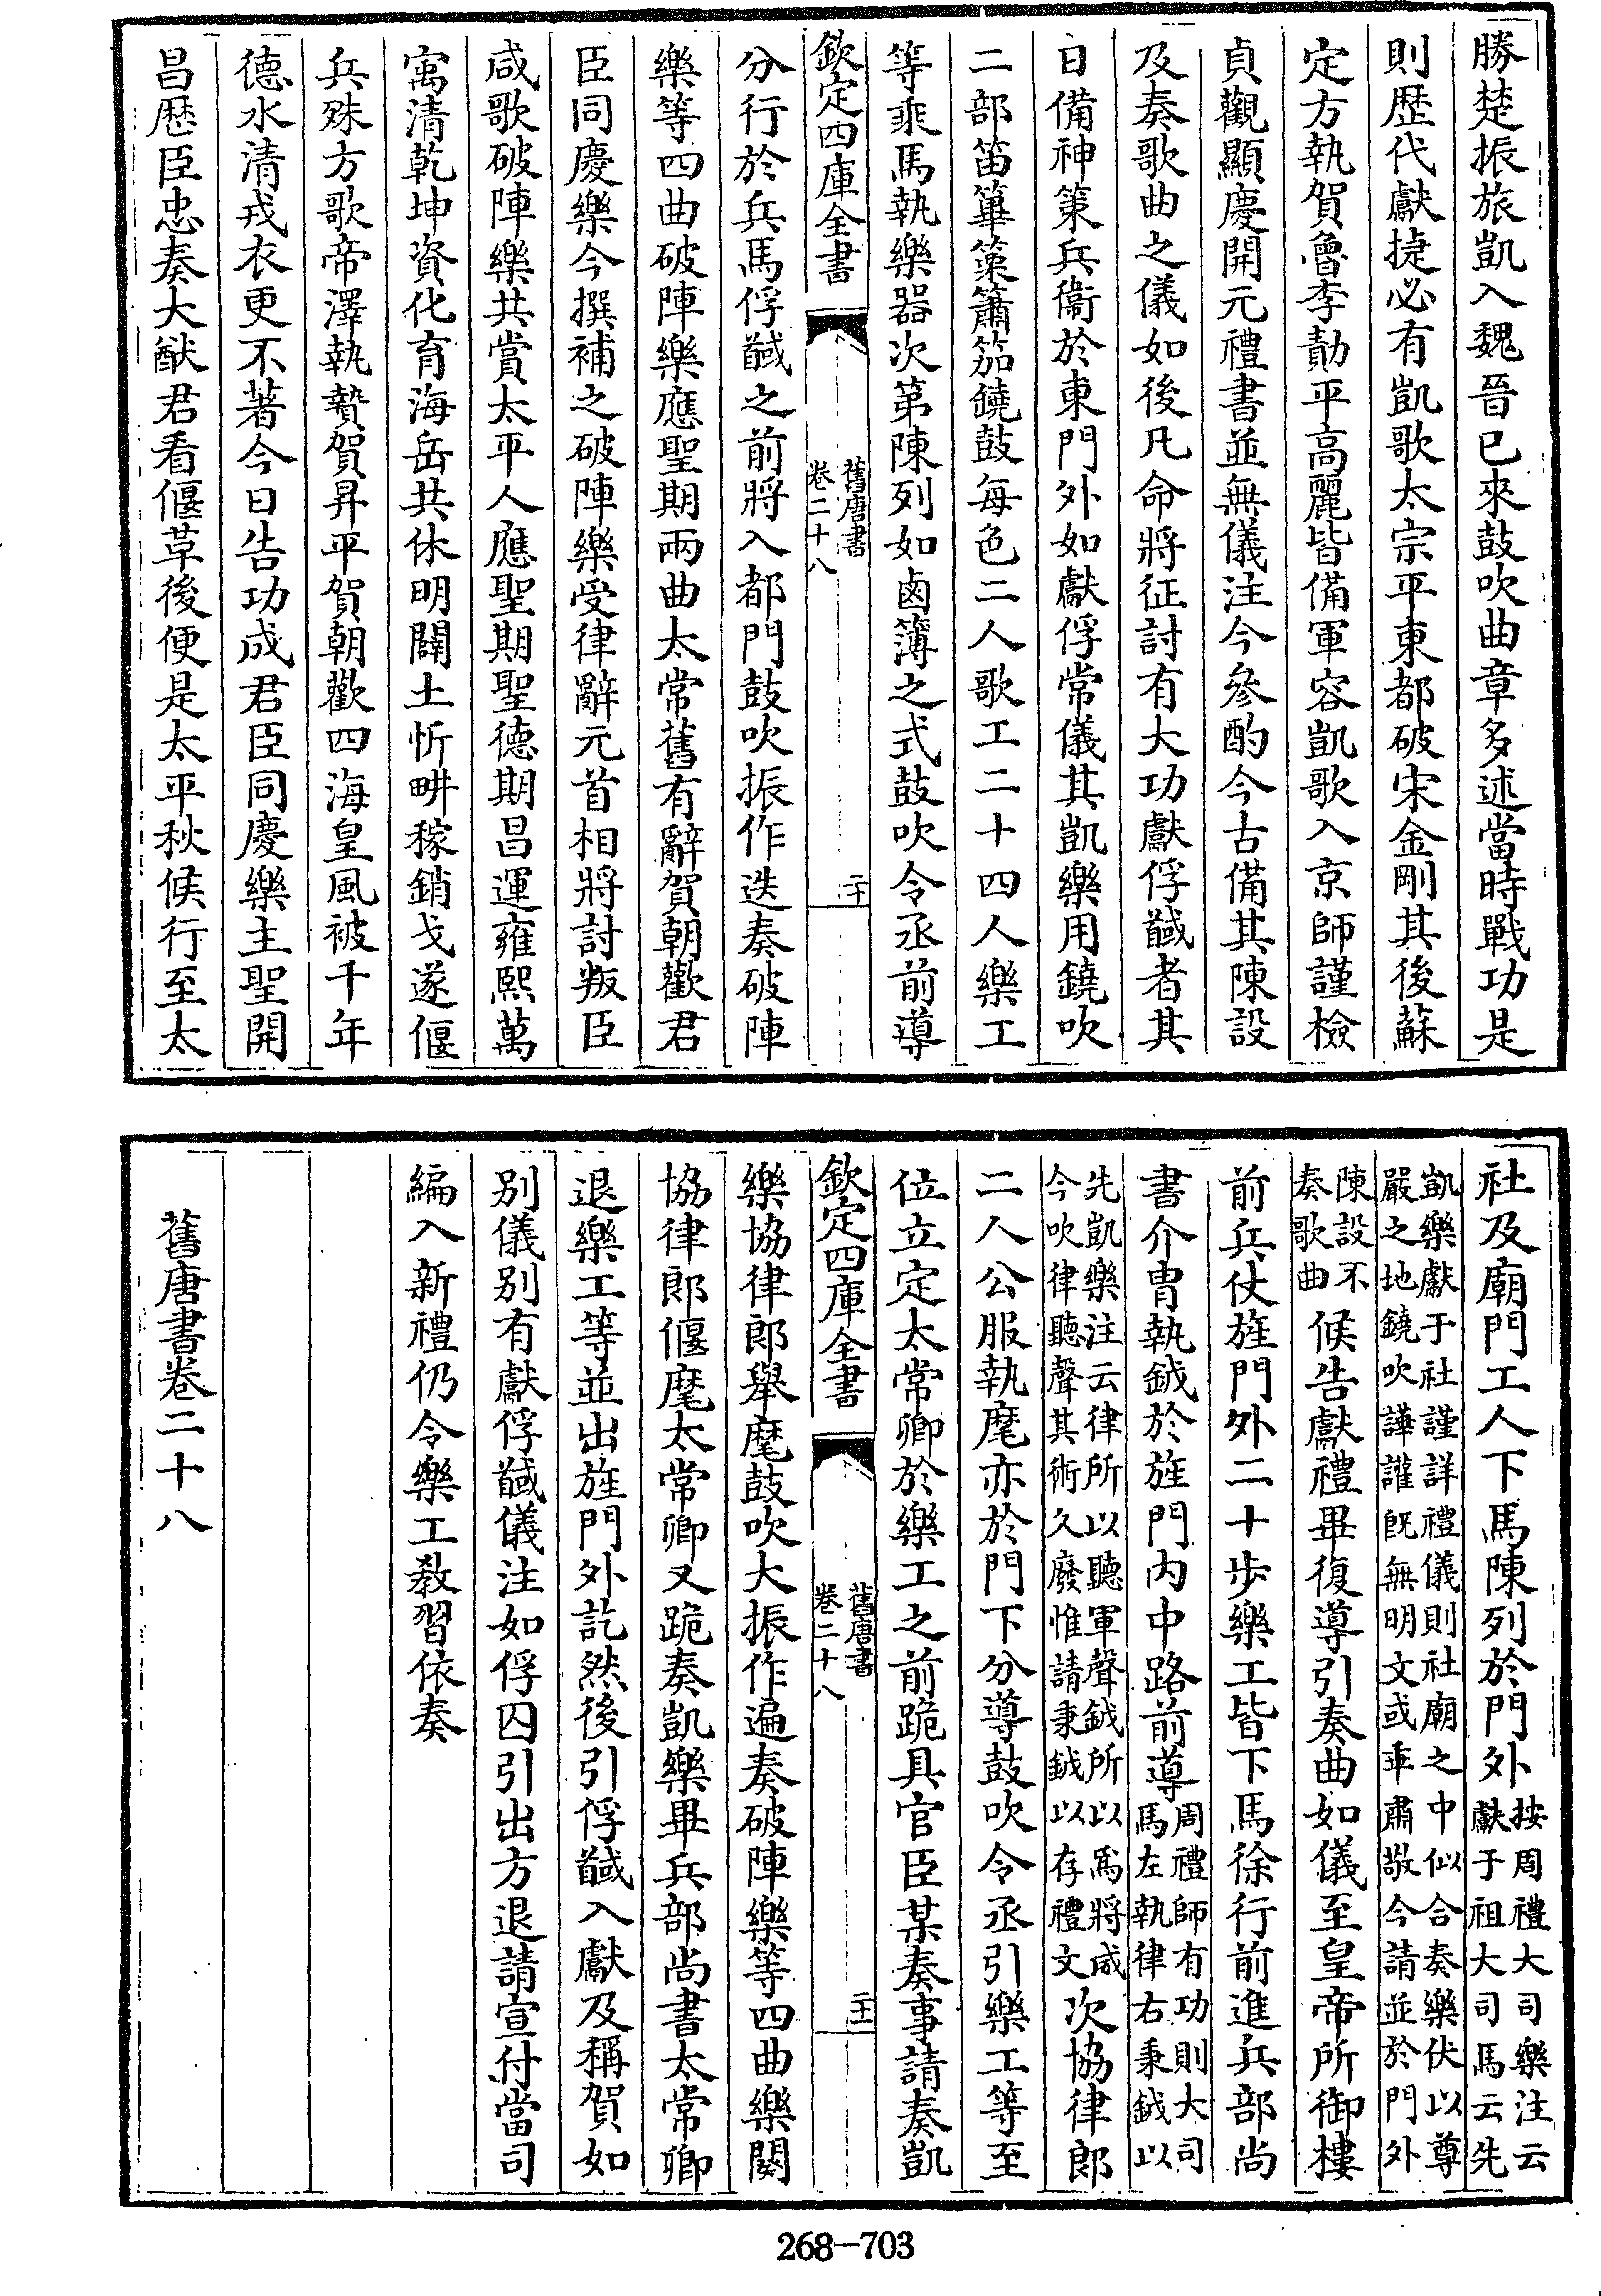 勝楚振旅凱入魏晉已來鼓吹曲章多述當時戰功是
則歴代獻捷必有凱歌太宗平東都破宋金剛其後蘇
定方執賀魯李勣平高麗皆備軍容凱歌入京師謹檢
貞觀顯慶開元禮書並無儀注今參酌今古備其陳設
及奏歌曲之儀如後凡命將征討有大功獻俘馘者其
日備神策兵衞於東門外如獻俘常儀其凱樂用鐃吹
二部笛篳篥簫笳鐃鼓每色二人歌工二十四人樂工
等乘馬執樂器次第陳列如鹵簿之式鼓吹令丞前導
欽定四庫全書
舊唐書
卷二十八
二十
分行於兵馬俘馘之前將入都門鼓吹振作迭奏破陣
樂等四曲破陣樂應聖期兩曲太常舊有辭賀朝歡君
臣同慶樂今撰補之破陣樂受律辭元首相將討叛臣
咸歌破陣樂共賞太平人應聖期聖德期昌運雍熙萬
寓清乾坤資化育海岳共休明闢土忻畊稼銷戈遂偃
兵殊方歌帝澤執贄賀昇平賀朝歡四海皇風被千年
德水清戎衣更不著今日告功成君臣同慶樂主聖開
昌厯臣忠奏大猷君看偃草後便是太平秋候行至太
社及廟門工人下馬陳列於門外按周禮大司樂注云
獻于祖大司馬云先
凱樂獻于社謹詳禮儀則社廟之中似合奏樂伏以尊
嚴之地鐃吹譁讙旣無明文或乖肅敬今請並於門外
陳設不
奏歌曲候告獻禮畢復導引奏曲如儀至皇帝所御樓
前兵仗旌門外二十步樂工皆下馬徐行前進兵部尚
書介胄執鉞於旌門内中路前導周禮師有功則大司
馬左執律右秉鉞以
先凱樂注云律所以聽軍聲鉞所以為將威
今吹律聽聲其術久廢惟請秉鉞以存禮文次協律郎
二人公服執麾亦於門下分導鼓吹令丞引樂工等至
位立定太常卿於樂工之前跪具官臣某奏事請奏凱
欽定四庫全書
舊唐書
卷二十八
二十一
樂協律郎舉麾鼓吹大振作遍奏破陣樂等四曲樂闋
協律郎偃麾太常卿又跪奏凱樂畢兵部尚書太常卿
退樂工等並出旌門外訖然後引俘馘入獻及稱賀如
别儀别有獻俘馘儀注如俘囚引出方退請宣付當司
編入新禮仍令樂工教習依奏
舊唐書卷二十八
268—703